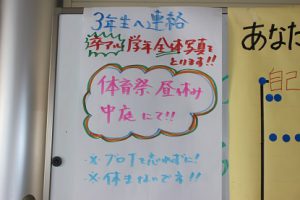 3年生へ連絡
卒アル 学年全体写真を
とります!!
体育祭 昼休み
中庭にて!!
※ブロTを忘れずに!
※休まないです!!
あなた
自己